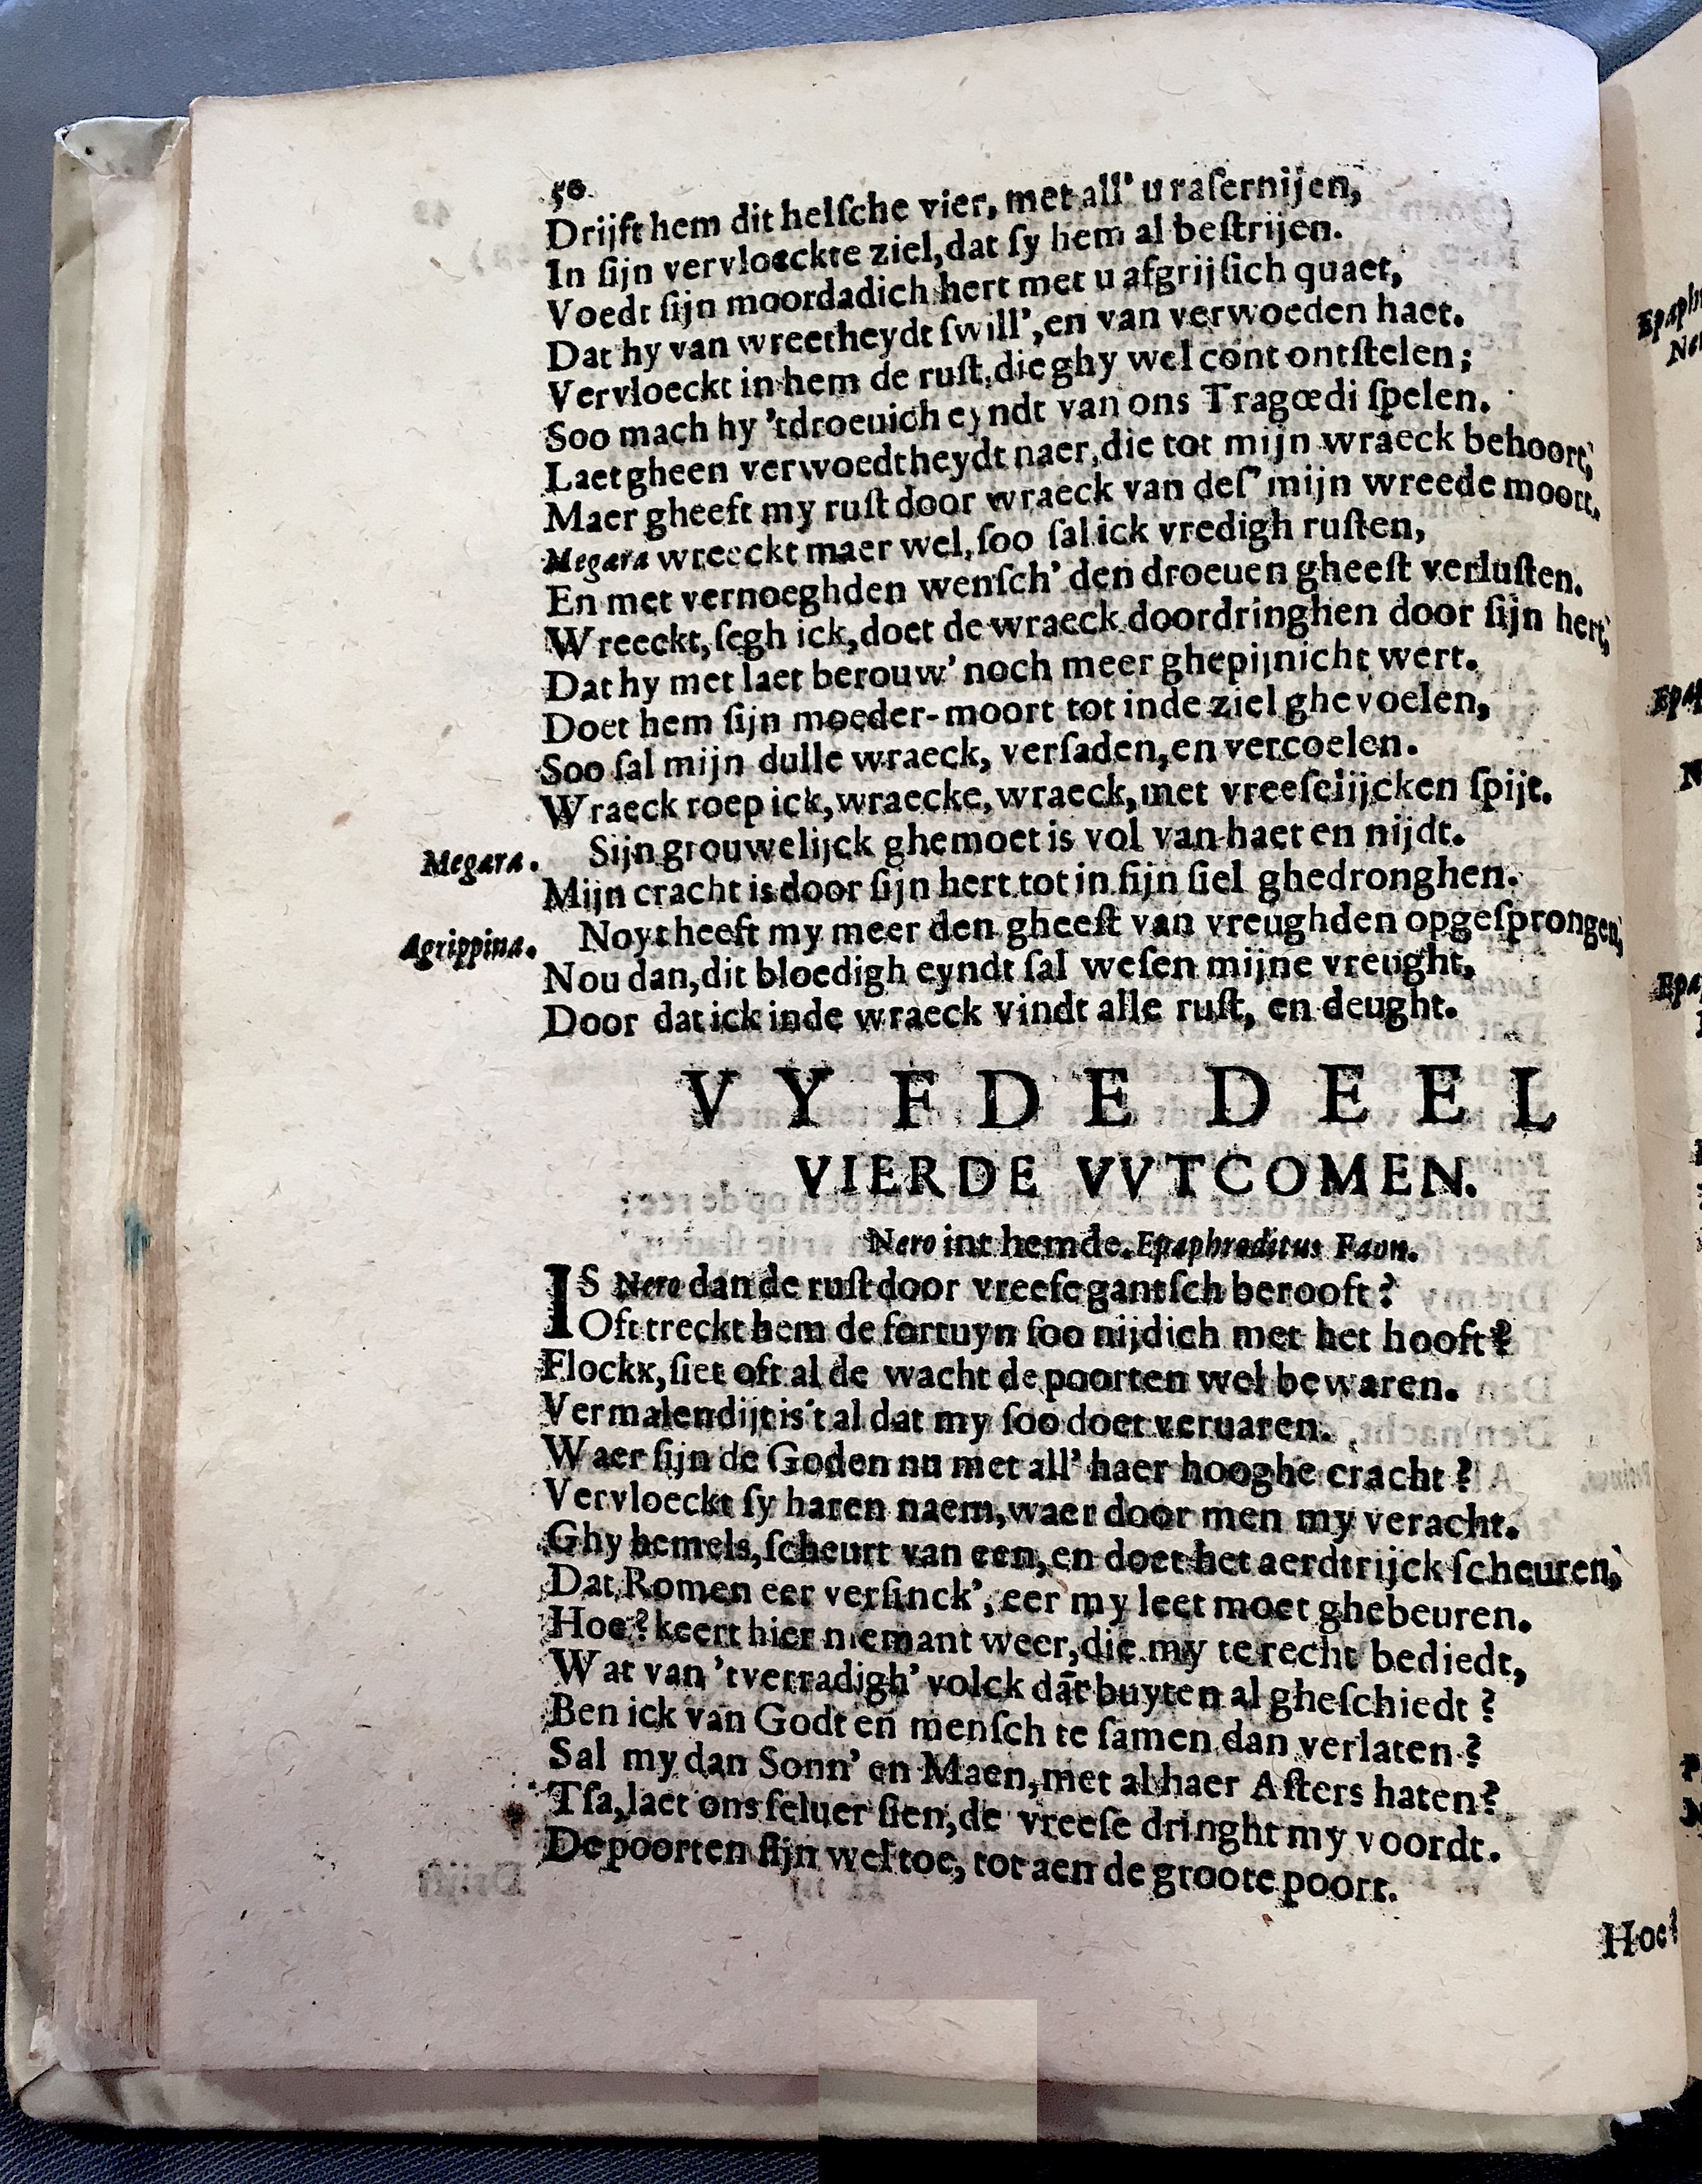 50
Drijft hem dit helſche vier, met all' u raſernijen,
In ſijn vervloeckte ziel, dat ſy hem al beſtrijen.
Voedt ſijn moordadich hert met u afgrijſich quaet,
Dat hy van wreetheydt ſwill', en van verwoeden haet.
Vervloeckt in hem de ruſt, die ghy wel cont ontſtelen;
Soo mach hy 'tdroeuich eyndt van ons Tragœdi ſpelen.
Laet gheen verwoedtheydt naer, die tot mijn wraeck behoort,
Maer gheeft my ruſt door wraeck van deſ' mijn wreede moort.
Megara wreeckt maer wel, ſoo ſal ick vredigh ruſten,
En met vernoeghden wenſch' den droeuen gheeſt verluſten.
Wreeckt, ſegh ick, doet de wraeck doordringhen door ſijn hert,
Dat hy met laet berouw' noch meer ghepijnicht wert.
Doet hem ſijn moeder-moort tot inde ziel ghevoelen,
Soo ſal mijn dulle wraeck, verſaden, en vercoelen.
Wraeck roep ick, wraecke, wraeck, met vreeſelijcken ſpijt.
Megara. Sijn grouwelijck ghemoet is vol van haet en nijdt.
Mijn cracht is door ſijn hert tot in ſijn ſiel ghedronghen.
Agrippina. Noyt heeft my meer den gheeſt van vreughden opgeſprongen,
Nou dan, dit bloedigh eyndt ſal weſen mijne vreught,
Door dat ick inde wraeck vindt alle ruſt, en deught.
VYFDE DEEL
VIERDE VVTCOMEN.
Nero int hemde. Epaphroditus Faon.
IS Nero dan de ruſt door vreeſe gantſch berooft?
Oft treckt hem de fortuyn ſoo nijdich met het hooft?
Flockx, ſiet oft al de wacht de poorten wel bewaren.
Vermalendijt is't al dat my ſoo doet veruaren.
Waer ſijn de Goden nu met all' haer hooghe cracht?
Vervloeckt ſy haren naem, waer door men my veracht.
Ghy hemels, ſcheurt van een, en doet het aerdtrijck ſcheuren,
Dat Romen eer verſinck', eer my leet moet ghebeuren.
Hoe? keert hier niemant weer, die my te recht bediedt,
Wat van 'tverradigh' volck dāt buyten al gheſchiedt?
Ben ick van Godt en menſch te ſamen dan verlaten?
Sal my dan Sonn' en Maen, met al haer Aſters haten?
Tſa, laet ons ſeluer ſien, de vreeſe dringht my voordt.
De poorten ſijn wel toe, tot aen de groote poort.
Hoe?